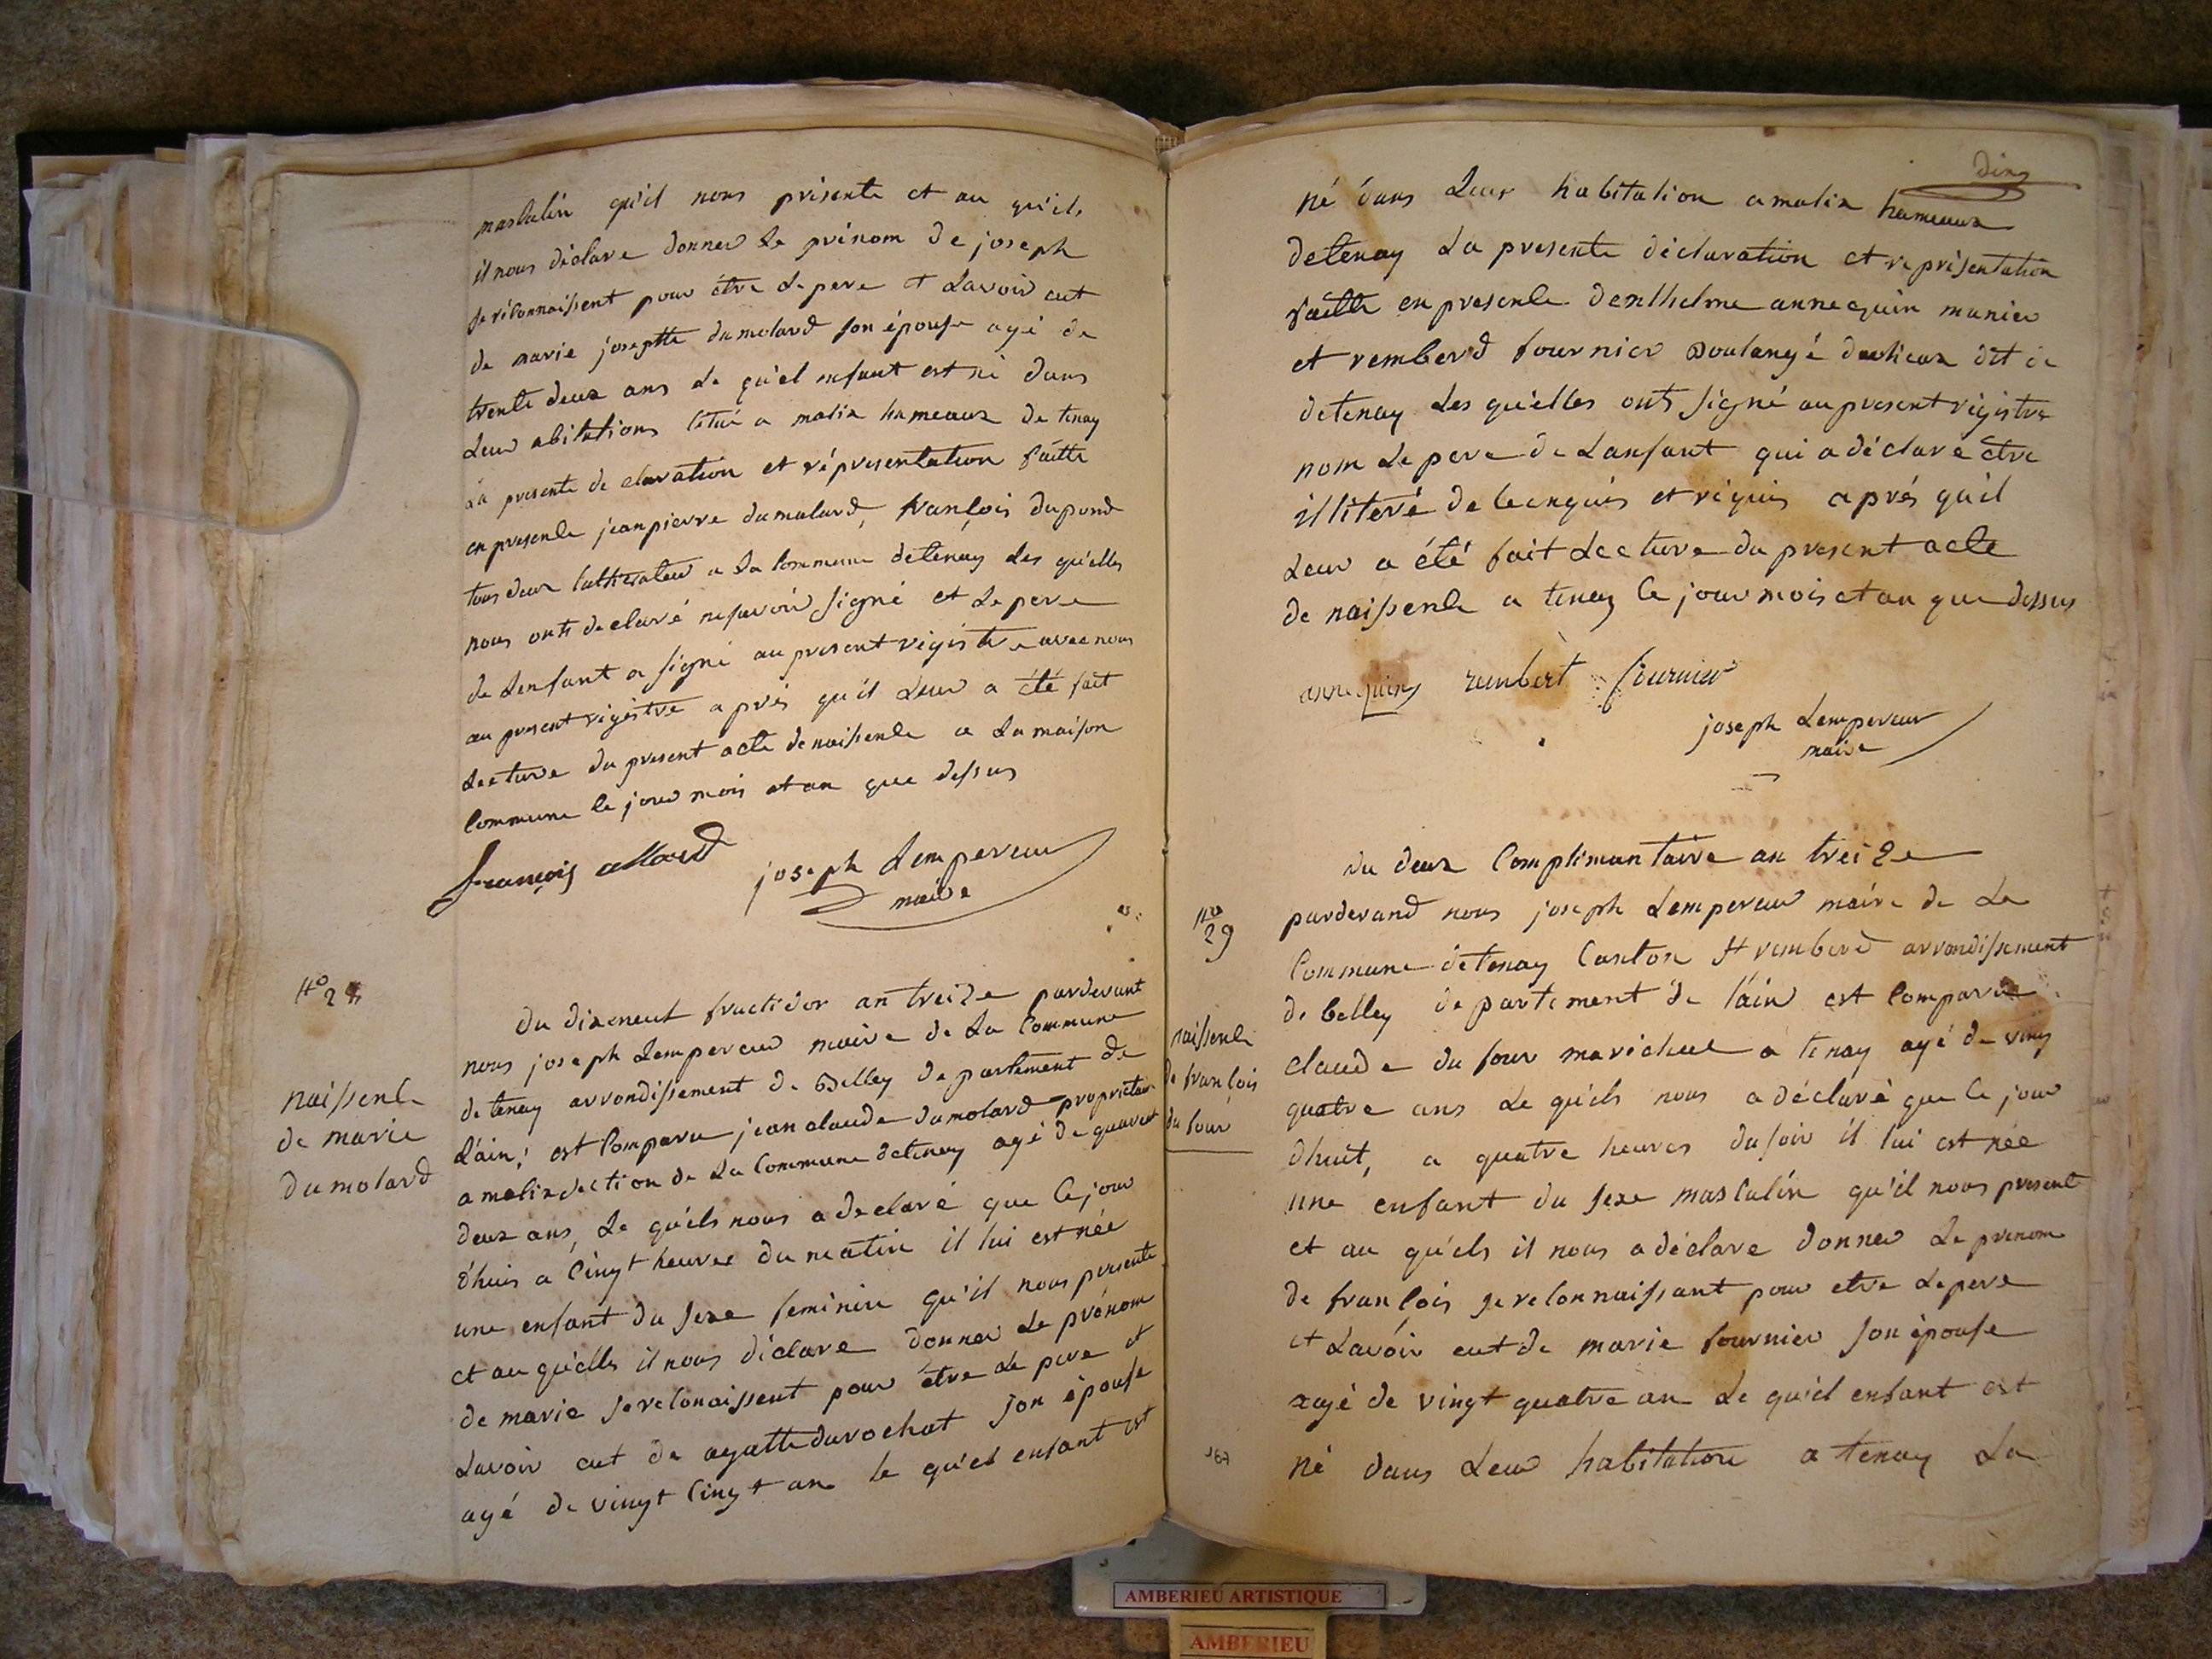 masculin qu'il nous présente et au qu'els
il nous déclare donner le prénom de joseph
se réconnaissent pour être le pere et Lavoir eut
de marie josephte dumolard son épouse agé de
trente deux ans le qu'el enfant est né dans
Leur abitations situé a malix hameaux de tenay
La presente de claration et réprésentation faitte
en presence jean pierre dumolard, françois dupond
tous deux cultivateur a La Commune detenay Les qu'elles
nous onts declaré ne savoir signé et Le pere
de Lenfant a signé au present régistre avec nous
au present régistre aprés qu'il Leur a été fait
Lecture du present acte de naissence a La maison
Commune le jour mois et an que dessus
françois allard joseph Lempereur
maire
N° 28
naissence
de marie
dumolard
Du dixeneut fructidor an treize pardevant
nous joseph Lempereur maire de La Commune
de tenay arrondissement de Belley departement de
L'ain; est Comparu jean claude dumolard proprietair
a malix section de La Commune detenay agé de quarent
deux ans, Le qu'els nous a declaré que Ce jour
d'huis a Cinqt heures du matin il lui est née
une enfant du sexe feminin qu'il nous presente
et au qu'elles il nous déclare donner Le prénom
de marie se reconaissent pour être Le pere et
Lavoir eut de agatte durochat son épouse
agé de vingt Cinqt an le qu'el enfant est
dix
né dans Leur habitation a malix hameaux
detenay La presente déclaration et réprésentation
faitte en presence denthelme annequin munier
et remberd fournier Boulangé
detenay Les qu'elles onts signé au present régistre
nom Le pere de Lanfant qui a déclaré etre
illiteré de Cenquis et réquis aprés qu'il
Leur a été fait Lecture du present acte
de naissence a tenay Ce jour mois et an que dessus
annequin rembert fournier
joseph Lempereur
maire
N°
29
naissence
de françois
du four
du deux Complimantaire an treize
pardevand nous joseph Lempereur maire de La
Commune detenay Canton St remberd arrondissement
de belley departement de l'ain est Comparu
claude du four marichal a tenay agé de vint
quatre ans Le qu'els nous a déclaré que Ce jour
dhuit, a quatre heures du soir il lui est née
une enfant du sexe masculin qu'il nous present
et au qu'els il nous a déclare donner Le prenom
de françois se reconnaissant pour etre Le pere
et Lavoir eut de marie fournier son épouse
agé de vingt quatre an Le qu'el enfant est
né dans Leur habitation a tenay La
AMBERIEU ARTISTIQUE
AMBERIEU